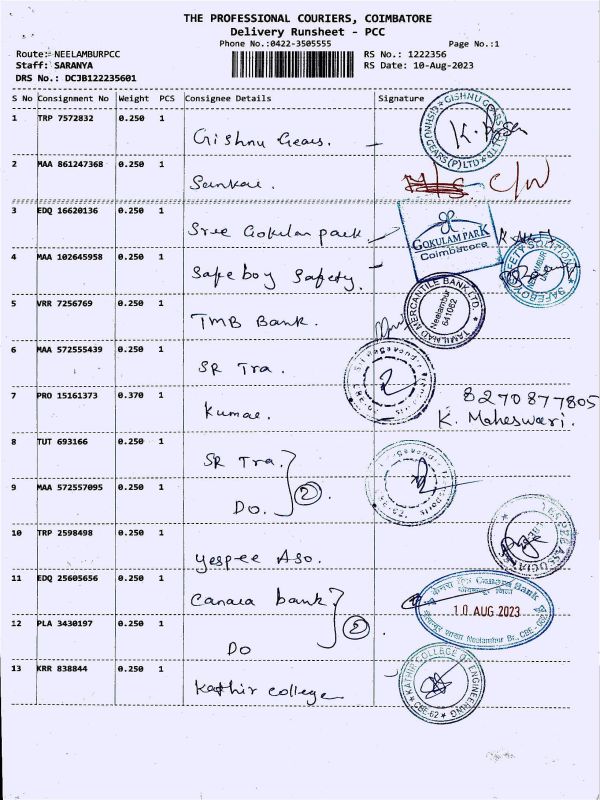 THE PROFESSIONAL COURIERS, COIMBATORE
Delivery Runsheet - PCC
Phone No.:0422-3505555 Page No.:1
Route: NEELAMBURPCC RS No.: 1222356
Staff: SARANYA RS Date: 10-Aug-2023
DRS No.: DCJB122235601
S No Consignment No Weight PCS Consignee Details Signature
1 TRP 7572832 0.250 1 Grishnu Gears. GISHNU GEARS (P) LTD
2 MAA 861247368 0.250 1 Sankar. M/s. C/W
3 EDQ 16620136 0.250 1 Sree Gokulam park GOKULAM PARK Coimbatore
4 MAA 102645958 0.250 1 Safe boy Safety. SAFEBOY SAFETY SOLUTION
5 VRR 7256769 0.250 1 TMB Bank. TAMILNAD MERCANTILE BANK LTD. Neelambur 641062
6 MAA 572555439 0.250 1 SR Tra.
7 PRO 15161373 0.370 1 Kumar. 8270877805
K. Maheswari.
8 TUT 693166 0.250 1 SR Tra.
9 MAA 572557095 0.250 1 Do. 2
10 TRP 2598498 0.250 1 yespee Aso.
11 EDQ 25605656 0.250 1 Canara bank केनरा बैंक Canara Bank
10 AUG 2023
Neelambur Br., CBE
12 PLA 3430197 0.250 1 Do 2
13 KRR 838844 0.250 1 Kathir college KATHIR COLLEGE OF ENGINEERING CBE-62